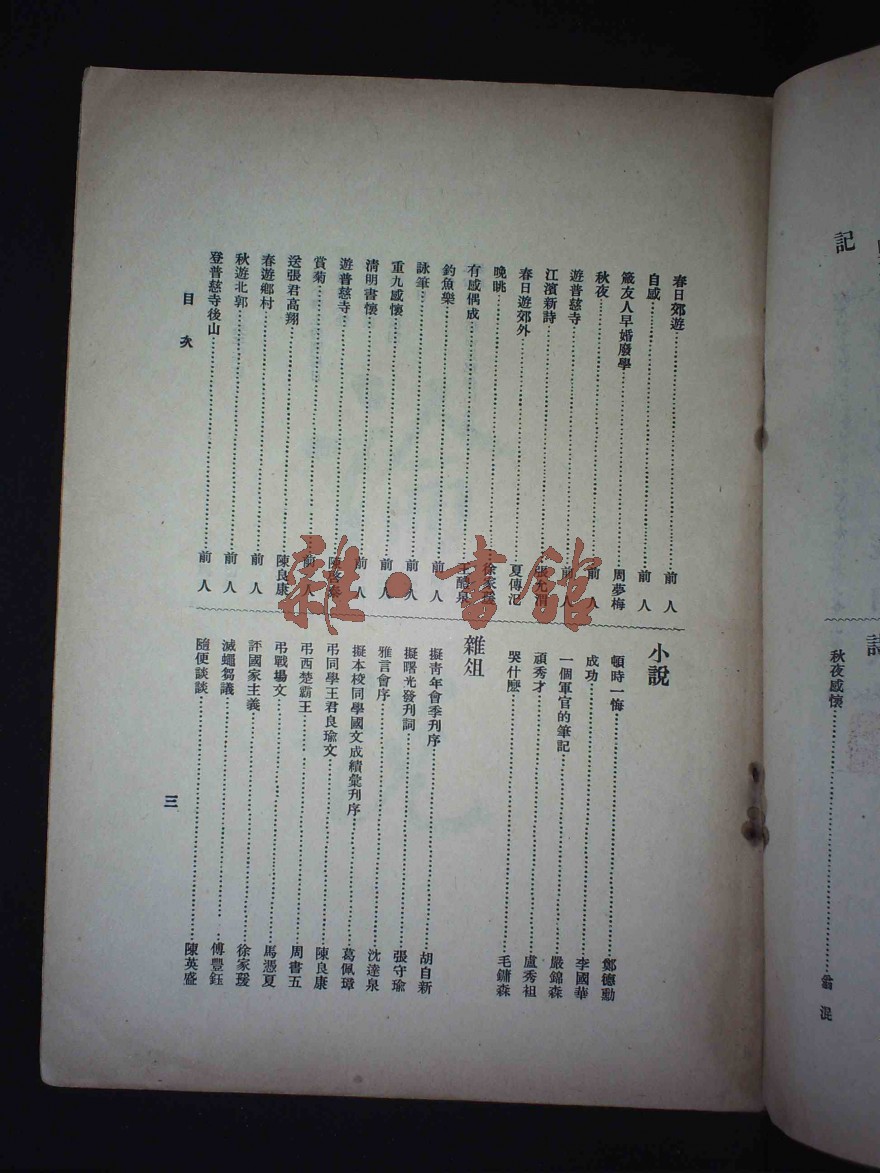 記
詩
秋夜感懷 翁 浞
春日郊遊 前 人
自感 前 人
箴友人早婚廢學 周夢梅
秋夜 前 人
遊普慈寺 前 人
江濱新詩 張允渭
春日遊郊外 夏傳洍
晚眺 徐家瑗
有感偶成 王醴泉
釣魚樂 前 人
詠筆 前 人
重九感懷 前 人
清明書懷 前 人
遊普慈寺 陳啓泰
賞菊 前 人
送張君高翔 陳良康
春遊鄉村 前 人
秋遊北郭 前 人
登普慈寺後山 前 人
小說
頓時一悔 鄭德勳
成功 李國華
一個軍官的筆記 嚴錦森
頑秀才 盧秀祖
哭什麽 毛鏞森
雜俎
擬青年會季刋序 胡自新
擬曙光發刋詞 張守瑜
雅言會序 沈達泉
擬本校同學國文成績彙刋序 葛佩璋
弔同學王君良瑜文 陳良康
弔西楚霸王 周書五
弔戰場文 馬憑夏
評國家主義 徐家瑗
滅蠅芻議 傅豐鈺
隨便談談 陳英盛
目次
三
雜·書館